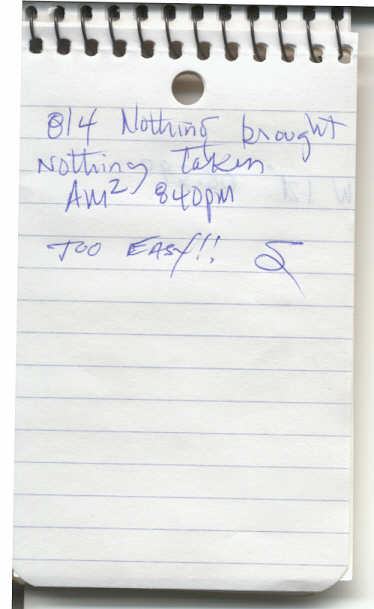 8/4 Nothing brought
Nothing Taken
AM² 840pm
TOO EASY!!